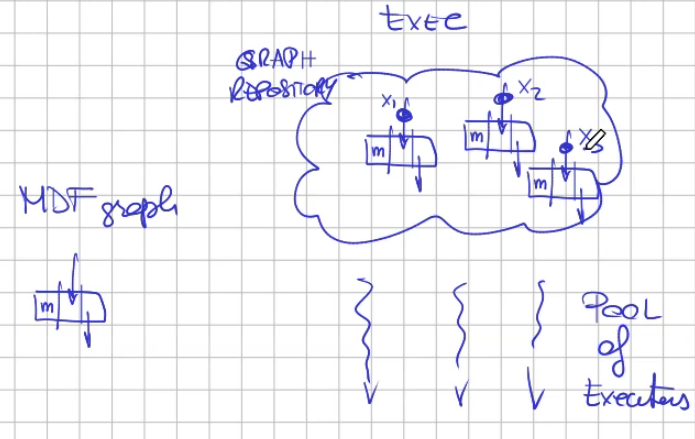 EXEC
GRAPH
REPOSITORY
x1
x2
x3
m
m
m
MDF graph
m
POOL
of
Executors